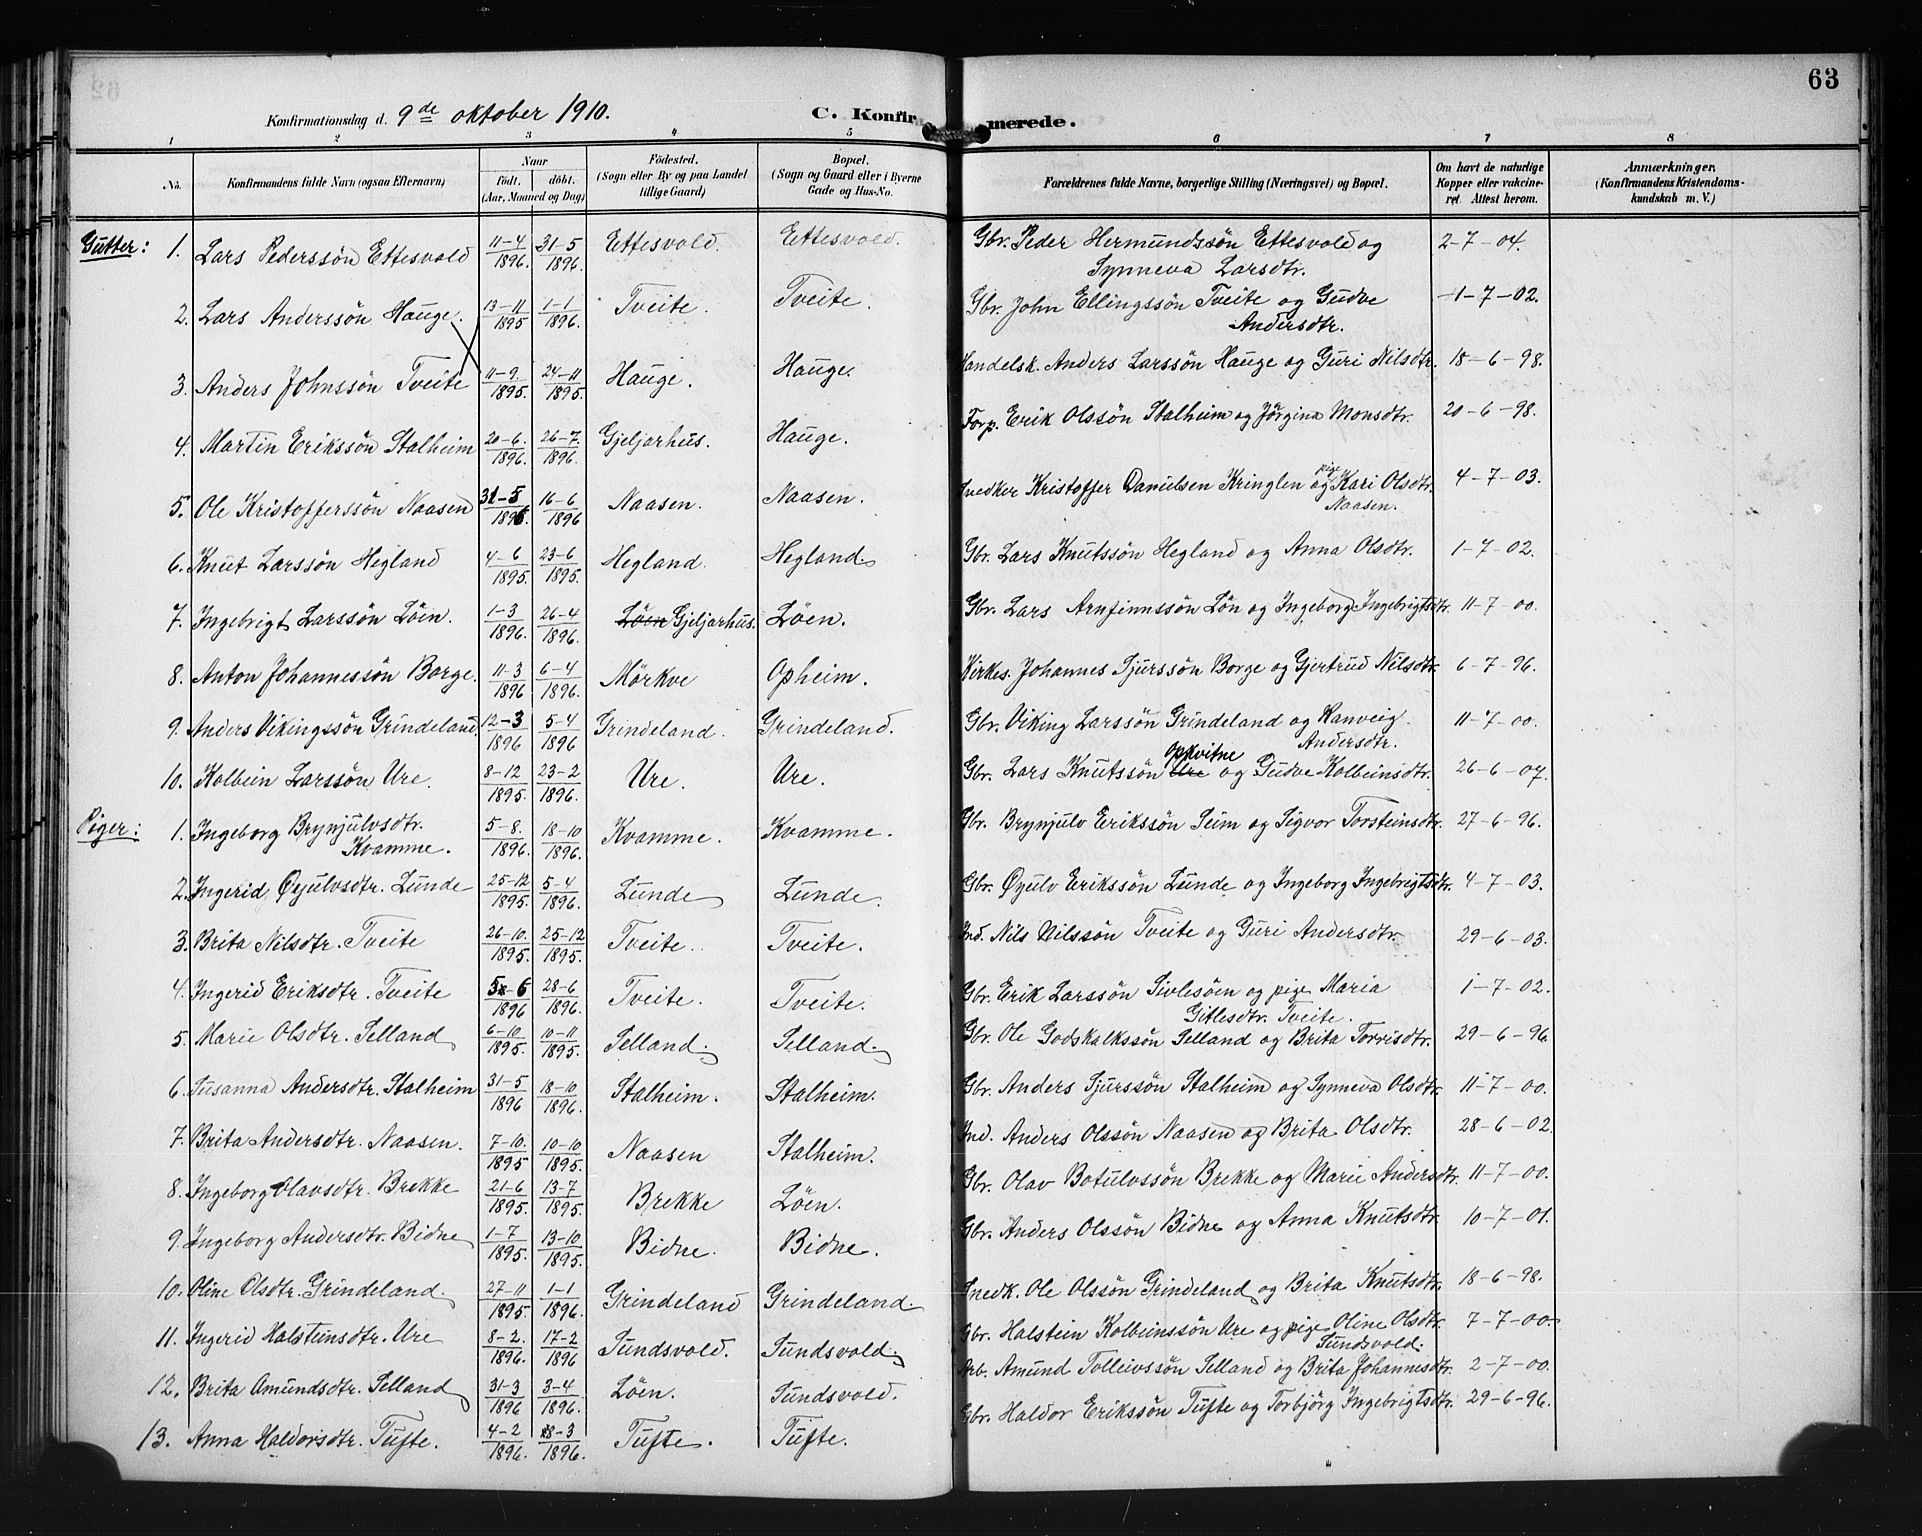 63
Konfirmationsdag d. 9de oktober 1910. C. Konfirmerede.
1 2 3 4 5 6 7 8
No. Konfirmandens fulde Navn (ogsaa Efternavn) Naar født. døbt. (Aar, Maaned og Dag) Fødested. (Sogn eller By og paa Landet tillige Gaard) Bopæl. (Sogn og Gaard eller i Byerne Gade og Hus-No. Forældrenes fulde Navne, borgerlige Stilling (Næringsvei) og Bopæl. Om havt de naturlige Kopper eller vakcineret. Attest herom. Anmærkninger. (Konfirmandens Kristendomskundskab m. V.)
Gutter: 1. Lars Pederssön Ettesvold 11-4 1896. 31-5 1896. Ettesvold. Ettesvold. Gbr. Peder Hermundssön Ettesvold og Synneva Larsdtr. 2-7-04.
2. Lars Anderssön Hauge. 13-11 1895 1-1 1896. Tveite. Tveite. Gbr. John Ellingssön Tveite og Gudve Andersdtr. 1-7-02.
3. Anders Johnssön Tveite 11-9. 1895. 24-11 1895. Hauge. Hauge. Handelsk. Anders Larssön Hauge og Guri Nilsdtr. 18-6-98.
4. Martin Erikssön Stalheim 20-6. 1896. 26-7. 1896. Gjeljarhus. Hauge. Forp. Erik Olssön Stalheim og Jörgina Monsdtr. 20-6-98.
5. Ole Kristofferssön Naasen 31-5 1896. 16-6 1896 Naasen. Naasen. Snedker Kristoffer Danielsen Kringlen og pige Kari Olsdtr. Naasen. 4-7-03.
6. Knut Larssön Hegland 4-6 1895. 23-6 1895. Hegland. Hegland Gbr. Lars Knutssön Hegland og Anna Olsdtr. 1-7-02.
7. Ingebrigt Larssön Löen. 1-3 1896. 26-4 1896. Löen Gjeljarhus. Löen. Gbr. Lars Arnfinnssön Lön og Ingeborg Ingebrigtsdtr. 11-7-00.
8. Anton Johannessön Borge. 11-3 1896 6-4 1896. Mörkve Opheim. Kirkes. Johannes Sjurssön Borge og Gjertrud Nilsdtr. 6-7-96.
9. Anders Vikingssön Grindeland. 12-3 1896 5-4 1896 Grindeland. Grindeland. Gbr. Viking Larssön Grindeland og Ranveig Andersdtr. 11-7-00.
10. Kolbein Larssön Ure. 8-12 1895. 23-2 1896. Ure. Ure. Gbr. Lars Knutssön Ure Opkvitne og Gudve Kolbeinsdtr. 26-6-07.
Piger: 1. Ingeborg Brynjulvsdtr. Kvamme. 5-8. 1896. 18-10 1896. Kvamme. Kvamme. Gbr. Brynjulv Erikssön Seim og Sigvor Torsteinsdtr. 27-6-96.
2. Ingerid Øyulvsdtr. Lunde 25-12 1895. 5-4 1896. Lunde Lunde. Gbr. Øyulv Erikssön Lunde og Ingeborg Ingebrigtsdtr. 4-7-03.
3. Brita Nilsdtr. Tveite 26-10. 1895. 25-12 1895. Tveite. Tveite. Ind. Nils Nilssön Tveite og Guri Andersdtr. 29-6-03.
4. Ingerid Eriksdtr. Tveite 5-6 1896 28-6 1896. Tveite. Tveite. Gbr. Erik Larssön Sivlesöen og pige Maria Gitlesdtr. Tveite. 1-7-02.
5. Marie Olsdtr. Selland 6-10. 1895. 10-11 1895. Selland. Selland. Gbr. Ole Godskalkssön Selland og Brita Torrisdtr. 29-6-96
6. Susanna Andersdtr. Stalheim 31-5 1896 18-10 1896. Stalheim. Stalheim. Gbr. Anders Sjurssön Stalheim og Synneva Olsdtr. 11-7-00.
7. Brita Andersdtr. Naasen. 7-10. 1895 10-10 1895. Naasen Stalheim. Ind. Anders Olssön Naasen og Brita Olsdtr. 28-6-02
8. Ingeborg Olavsdtr. Brekke 21-6 1895. 13-7 1895. Brekke Löen. Gbr. Olav Botulvssön Brekke og Marie Andersdtr. 11-7-00.
9. Ingeborg Andersdtr. Bidne 1-7 1895. 13-10 1895. Bidne. Bidne. Gbr. Anders Olssön Bidne og Anna Knutsdtr. 10-7-01.
10. Oline Olsdtr. Grindeland. 27-11 1895. 1-1 1896. Grindeland Grindeland. Snedk. Ole Olssön Grindeland og Brita Knutsdtr. 18-6-98.
11. Ingerid Halsteinsdtr. Ure 8-2. 1896. 17-2 1896 Sundsvold. Sundsvold. Gbr. Halstein Kolbeinssön Ure og pige Oline Olsdtr. Sundsvold. 7-7-00.
12. Brita Amundsdtr. Selland 31-3 1896 3-4 1896. Löen. Sundsvold. Arb. Amund Tolleivssön Selland og Brita Johannesdtr. 2-7-00.
13. Anna Haldorsdtr. Tufte. 4-2 1896. 8-3 1896. Tufte. Tufte. Gbr. Haldor Erikssön Tufte og Torbjörg Ingebrigtsdtr. 29-6-96.